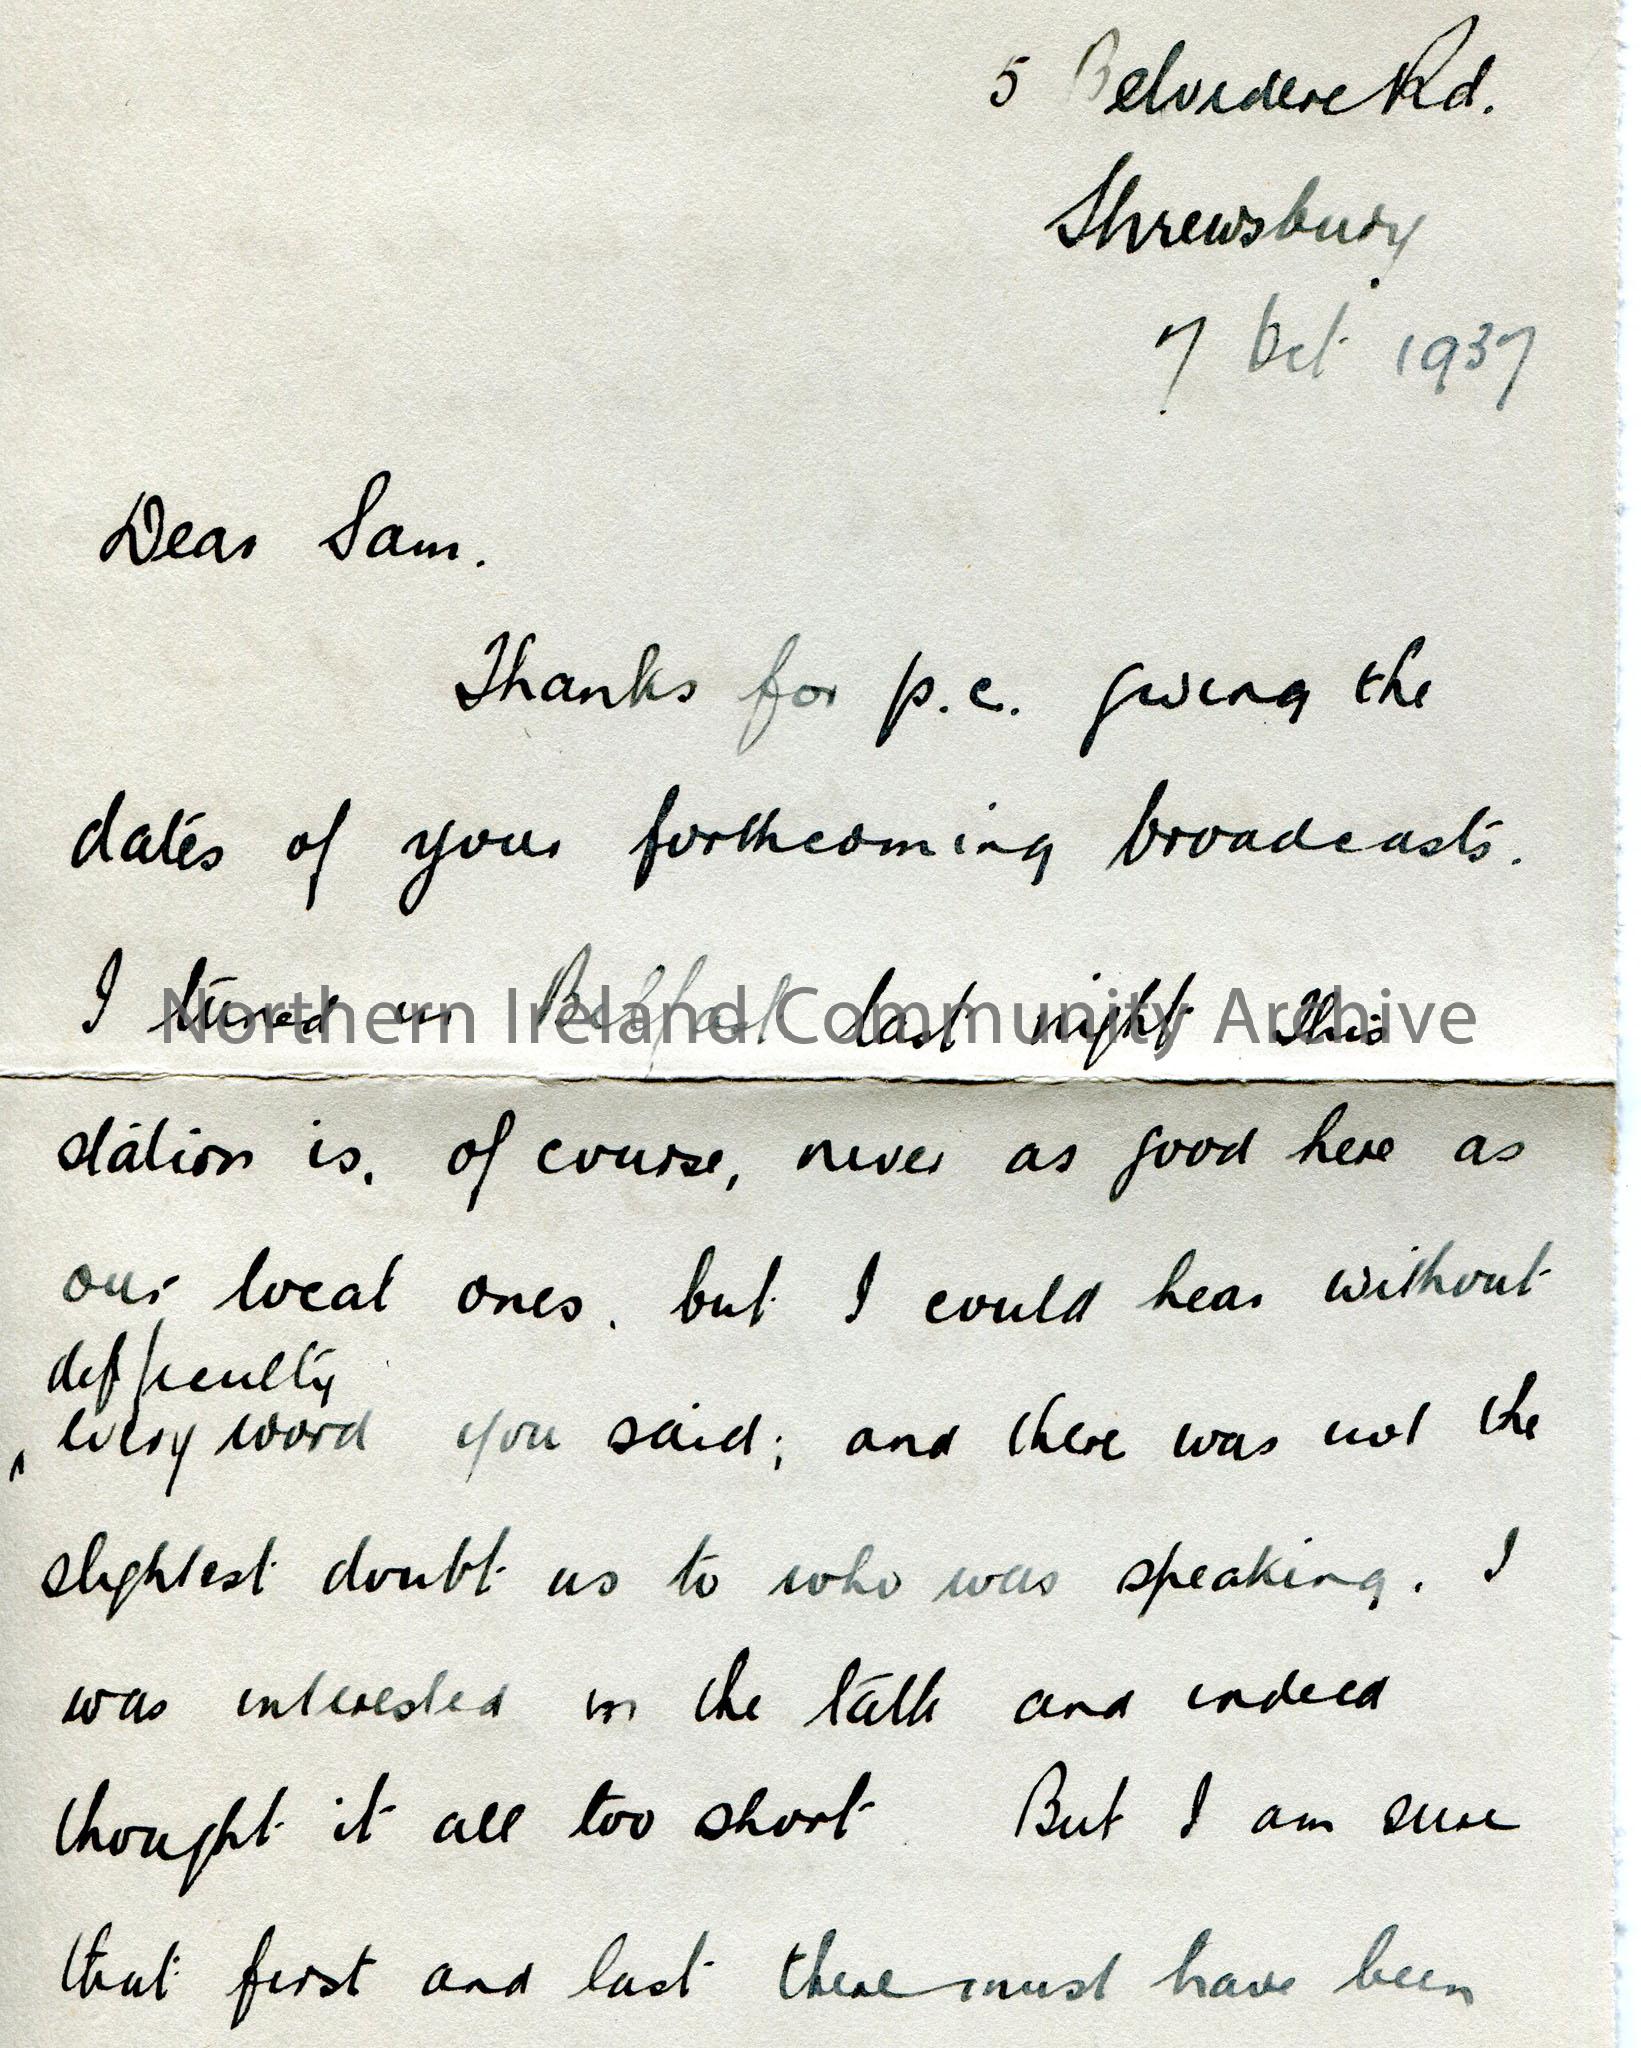 5 Belvidere Rd.
Shrewsbury
7 Oct 1937
Dear Sam.
Thanks for p.c. giving the
dates of your forthcoming broadcasts.
I tuned in Belfast last night This
Northern Ireland Community Archive
station is, of course, never as good here as
our local ones. but I could hear without
difficulty
^ every word you said; and there was not the
slightest doubt as to who was speaking. I
was interested in the talk and indeed
thought it all too short But I am sure
that first and last there must have been